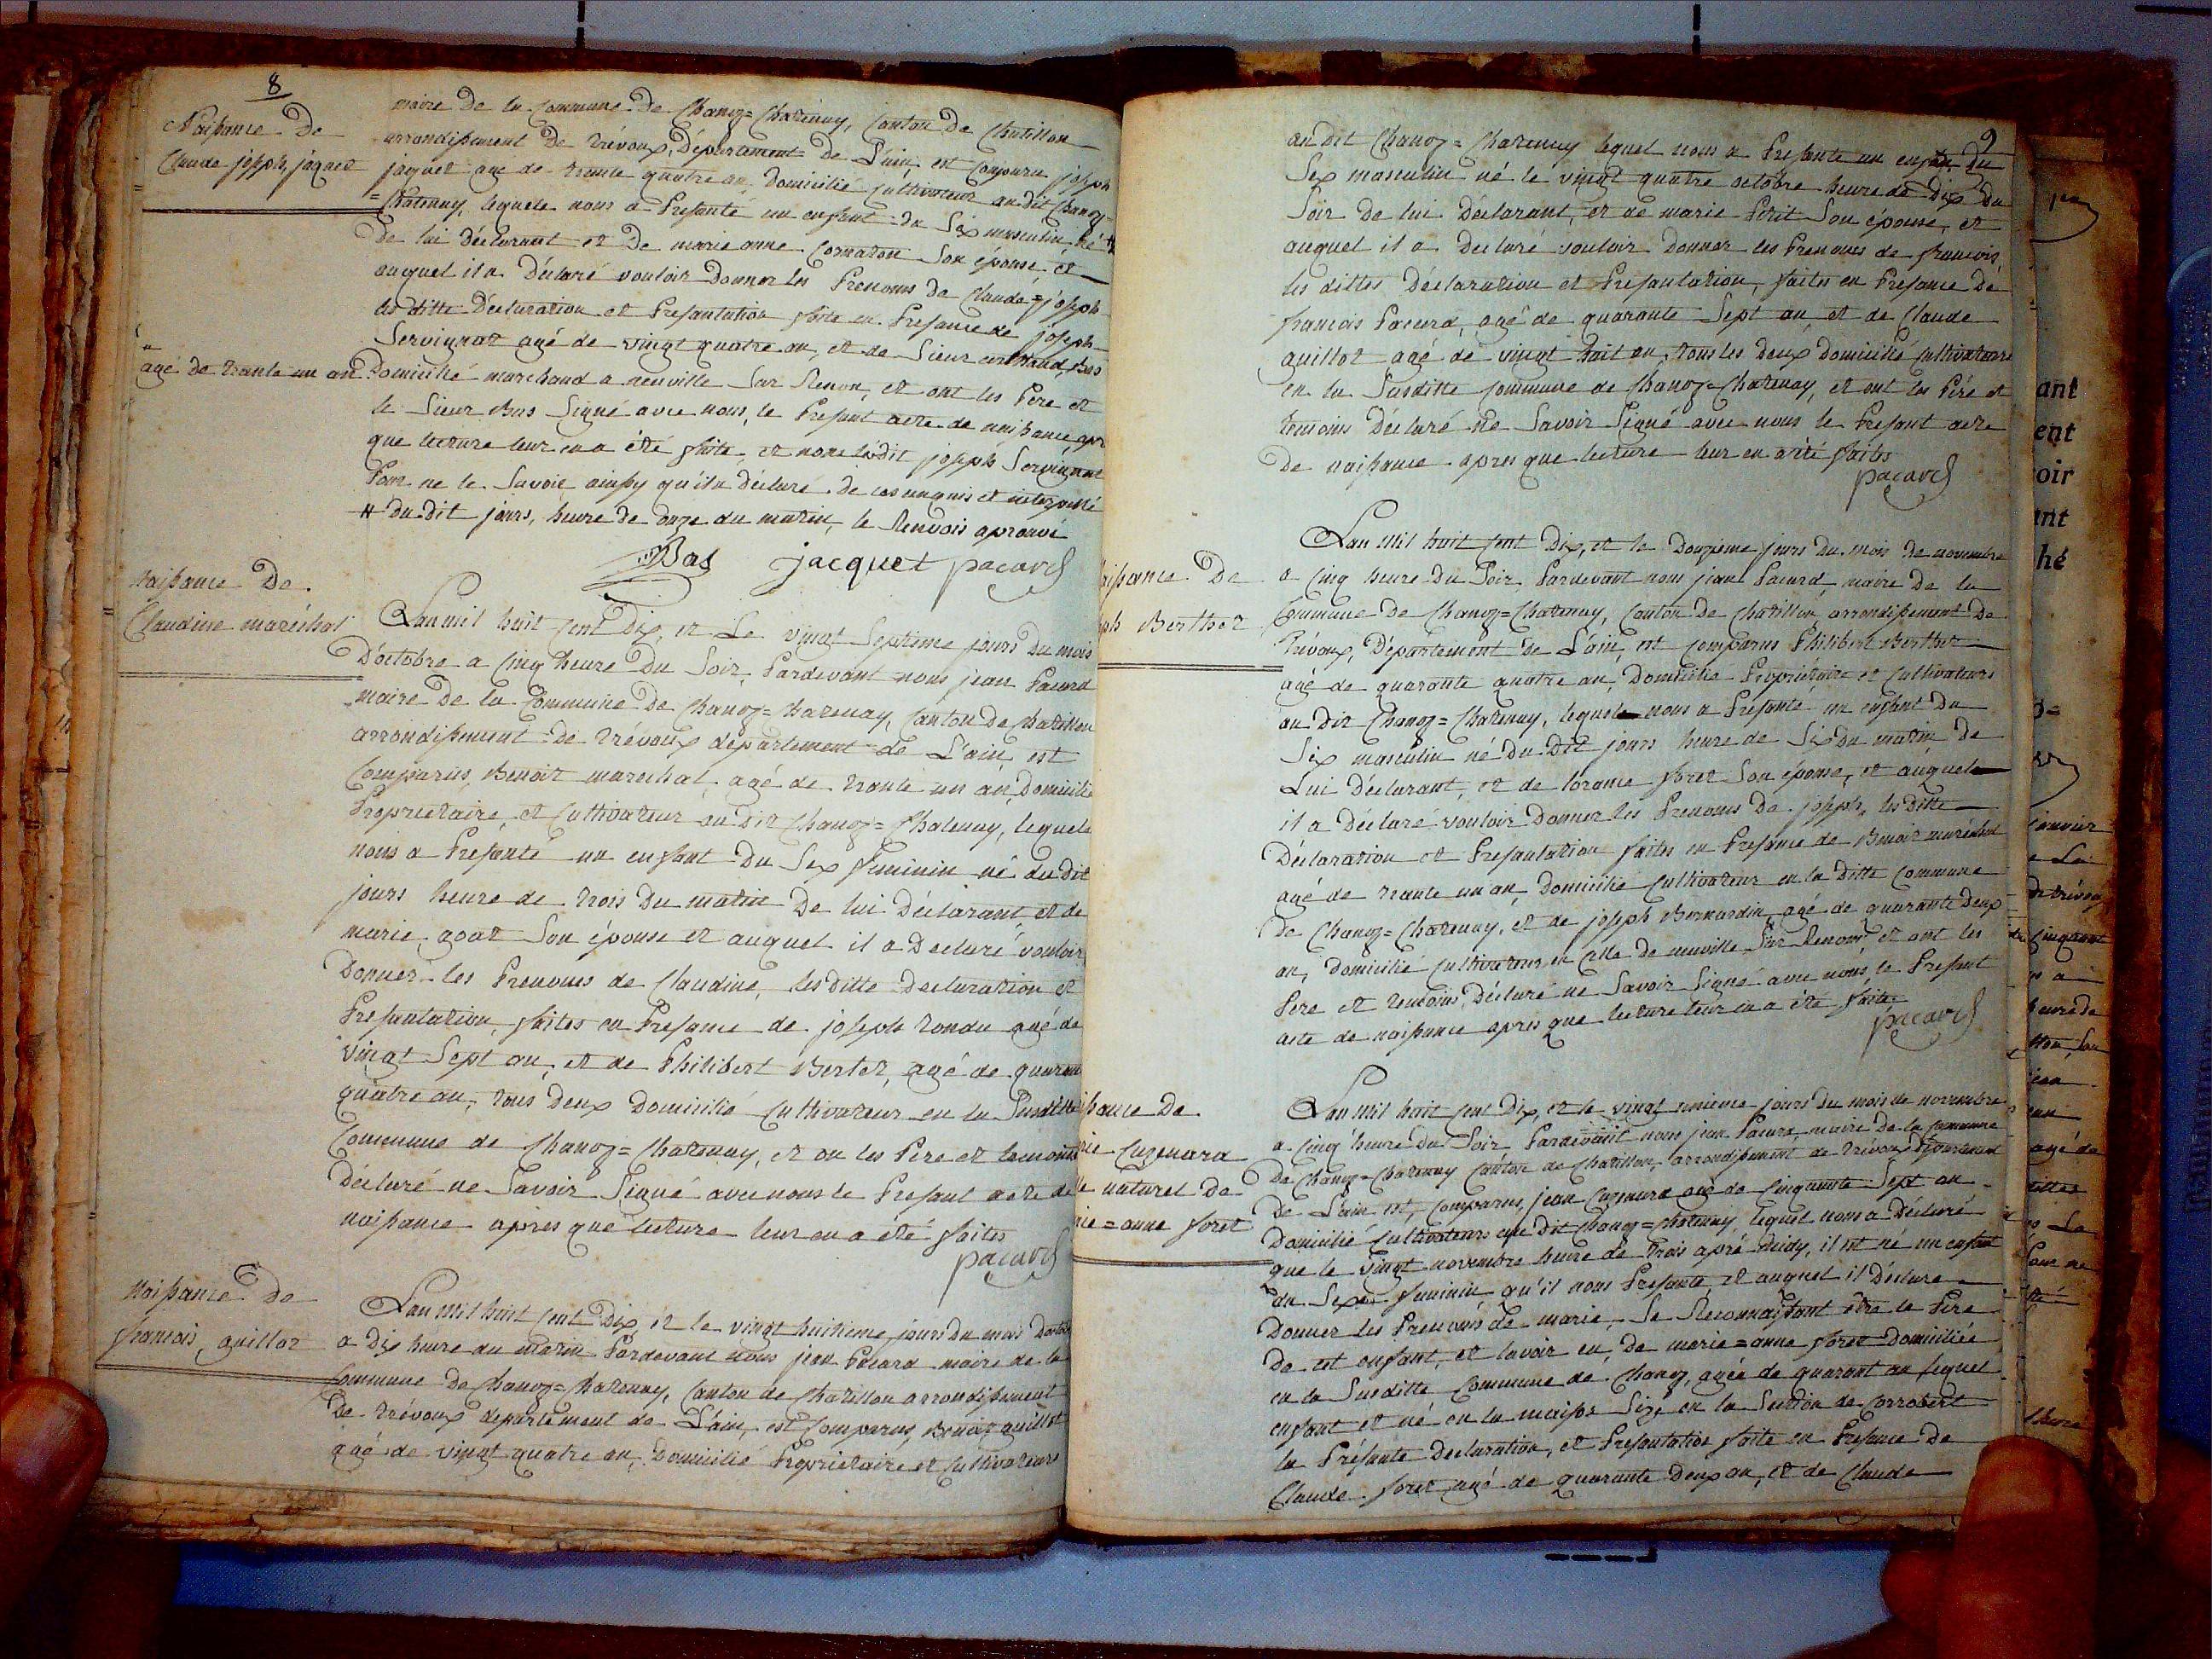 8
Naissance De
Claude joseph, jaques
maire de la Commune de Chanoz=Chatenay, Canton de Chatillon
arrondissement De trévoux, Département de L'ain, est Comparu joseph
jaques agé de trante quatre an, Domicilié Cultivateur au dit Chanoz
=Chatenay, lequele nous a Presanté un enfant du Sex masculin né #
de lui déclarant et De marie anne Cornaton Son épouse, et
auquel il a Déclaré vouloir Donner les Prenoms de Claude=joseph
les ditte Déclaration et Presantation faite en Presance de joseph
Servignat agé de vingt quatre an, et de Sieur Bas
agé de trante un an Domicilié marchand a neuville Sur Renon, et ont les Pere et
le Sieur Bas Signé avec nous, le Presant acte de naissance, apr
que lecture leur en a été faite, et nom ledit joseph Servignat
Pour ne le Savoir ainsy qu'il a déclaré de ces enquis et interpellé
# du dit jours, heure de onze du matin, le Renvois aprouvé
Bas jacquet pacard
naissance De
Claudine maréchal
Lan mil huit Cent Dix, et Le vingt Septieme jours Du mois
D'octobre a Cinq heure Du Soir, Pardevant nous jean Pacard
maire De la Commune De Chanoz=Chatenay, Canton De Chatillon
arrondissement De trévoux département de L'ain est
Comparus Benoit marechal, agé de trante un an, Domicilié
Proprietaire, et Cultivateur au Dit Chanoz=Chatenay, lequele
nous a Presanté un enfant Du Sex feminin né du dit
jours heure de trois Du matin De lui Déclarant et de
marie agat Son épouse et auquel il a Declaré vouloir
Donner les Prenoms de Claudine, les ditte Declaration et
Presantation, faites en Presance de joseph rondu agé de
vingt Sept an, et de Philibert Berter, agé de quaran
quatre an, tous Deux Domicilié Cultivateur en la Susditte
Commune de Chanoz=Chatenay, et on les Pere et temoins
Déclaré ne Savoir Signé avec nous le Presant acte de
naissance après que lecture leur en a été faites
pacard
naissance De
francois, guillot
Lan mil huit Cent Dix, et le vingt huitieme jours Du mois Doctobre
a Dix heure du matin Pardevant nous jean Pacard maire de la
Commune De Chanoz=Chatenay, Canton de Chatillon arrondissement
De trévoux departement de L'ain, est Comparus, Benoit guillot
agé de vingt quatre an, Domicilié Proprietaire et Cultivateurs
9
au dit Chanoz=Chatenay lequel nous a Presanté un enfan Du
Sex masculin né le vingt quatre octobre heure de Dix du
Soir De lui Déclarant, et de marie Petit Son épouse, et
auquel il a declaré vouloir Donner les Prenoms de francois,
les dittes Déclaration et Presantation, faites en Presance De
francois Pacard, agé de quarante Sept an, et de Claude
guillot agé de vingt huit an, tous les deux Domicilié Cultivateurs
en la Susditte Commune de Chanoz=Chatenay, et ont les Pére et
temoins Déclaré ne Savoir Signé avec nous le Presant acte
De naissance apres que lecture leur en a été faites
pacard
aissance De
ph Berthet
Lan Mil huit Cent Dix, et le Douzieme jours Du mois De novembre
a Cinq heure Du Soir Pardevant nous jean Pacard, maire de la
Commune De Chanoz=Chatenay, Canton de Chatillon arrondissement De
trévoux, Département De L'ain, est Comparus Philibert Berthet
agé de quarante quatre an, Domicilié Proprietaire et Cultivateurs
au Dit Chanoz=Chatenay, lequele nous a Presanté un enfant Du
Sex masculin né Du Dit jours heure de Six Du matin De
Lui Déclarant, et de lorance foret Son épouse, et auquele
il a Déclare vouloir Donner les Prenoms De joseph, les ditte
Déclaration et Presantation faites en Presance de Benoit maréchal
agé de trante un an Domicilié Cultivateur en la Ditte Commune
De Chanoz=Chatenay, et de joseph Bernardin, agé de quarante Deux
an, Domicilié Cultivateur en Celle de neuville Sur Renom, et ont les
Pere et temoins, Déclaré ne Savoir Signé avec nous, le Presant
acte de naissance apres que lecture leur en a été faites
pacard
issance De
rie Cuzenard
le naturel De
rie=anne foret
Lan mil huit Cent Dix, et le vingt unieme jours Du mois de novembre
a Cinq heure Du Soir Pardevant nous jean Pacard, maire De la Commune
De Chanoz=Chatenay Canton de Chatillon, arrondissement de trévoux Département
De L'ain est, Comparus, jean Cuzenard agé de Cinquante Sept an
Domicilié Cultivateurs au Dit Chanoz=Chatenay, lequel nous a Déclaré
que le vingt novembre heure de trois apré midy, il est né un enfant
du Sexe feminin qu'il nous Presante, et auquel il Déclare
Donner les Prenoms de marie, Se Reconnaissant être le Pere
De cet enfant, et lavoir eu, De marie=anne foret Domiciliée
en la Susditte Commune de Chanoz, agée de quarant an lequel
enfant et né en la maison Size en la Section de Corrobert
la Présante Declaration, et Presantation faite en Presance De
Claude foret, agé de quarante Deux an, et de Claude
ant
ent
oir
ant
hé
janvier